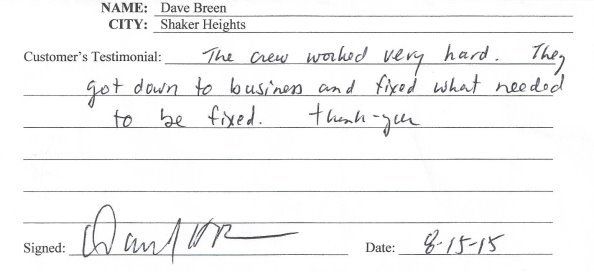 NAME: Dave Breen
CITY: Shaker Heights
Customer's Testimonial: The crew worked very hard. They
got down to business and fixed what needed
to be fixed. thank-you
Signed: Date: 8-15-15